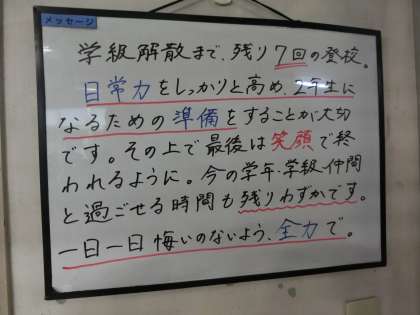 メッセージ
学級解散まで、残り7回の登校。
日常力をしっかりと高め、2年生に
なるための準備をすることが大切
です。その上で最後は笑顔で終
われるように。今の学年・学級・仲間
と過ごせる時間も残りわずかです。
一日一日悔いのないよう、全力で。